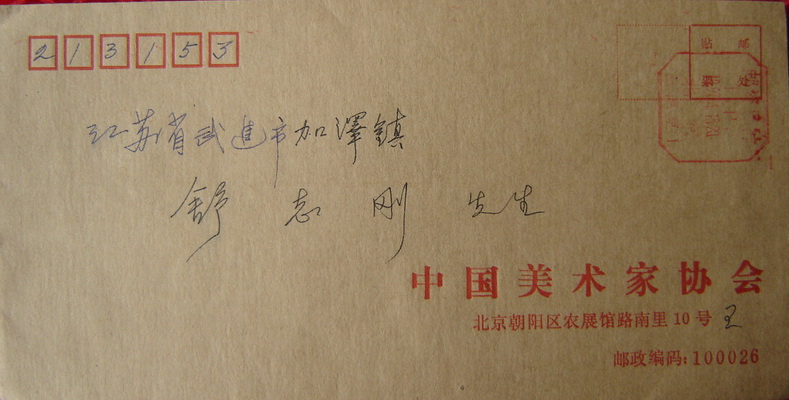 213153
贴 邮
票 处
江苏省武进市加泽鎮
舒志刚 先生
中国美术家协会
北京朝阳区农展馆路南里10号 王
邮政编码:100026